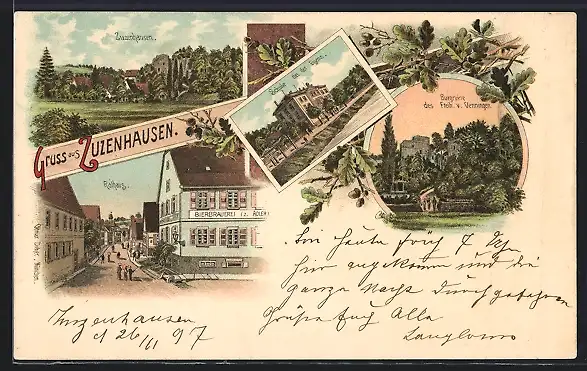 Zuzenhausen.
Gruss aus Zuzenhausen.
Burgruine
des Freih. v. Venningen.
Rathaus.
BIERBRAUEREI z. ADLER
Bin heute früh 7 Uhr
hier angekommen und die
ganze Nacht durchgefahren
Grüße Euch Alle
Zuzenhausen
d 26/11 97